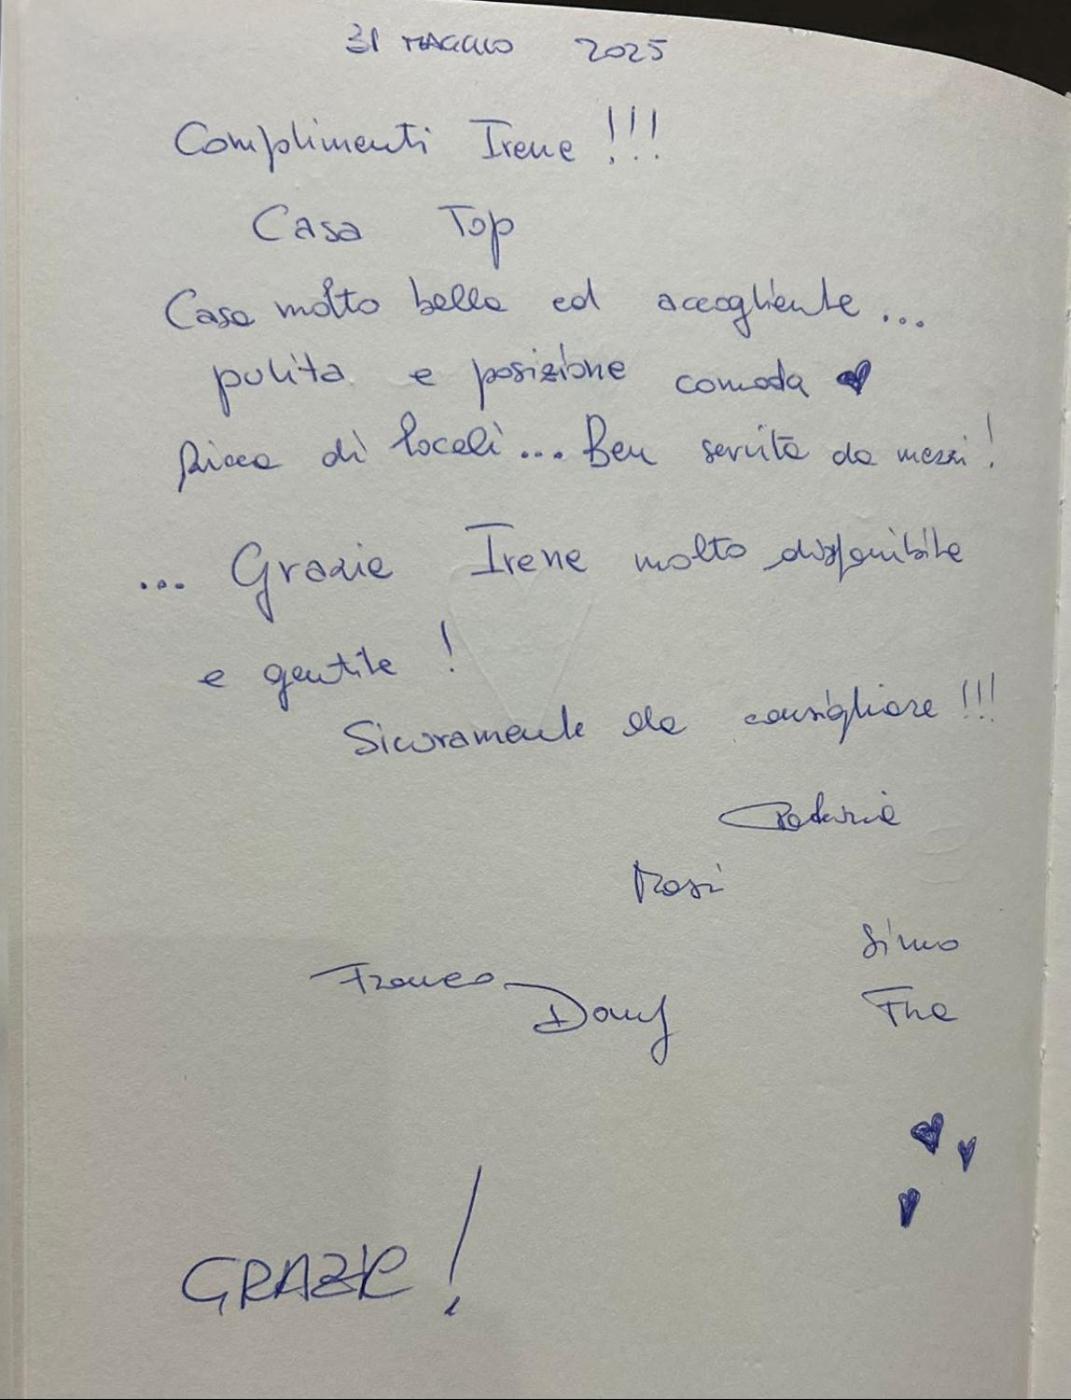 31 MAGGIO 2025
Complimenti Irene !!!
Casa Top
Casa molto bella ed accogliente...
pulita e posizione comoda
Ricca di locali... Ben servita da mezzi!
... Grazie Irene molto disponibile
e gentile !
Sicuramente da consigliare !!!
Rosi
Simo
Franco Dany
GRAZIE !